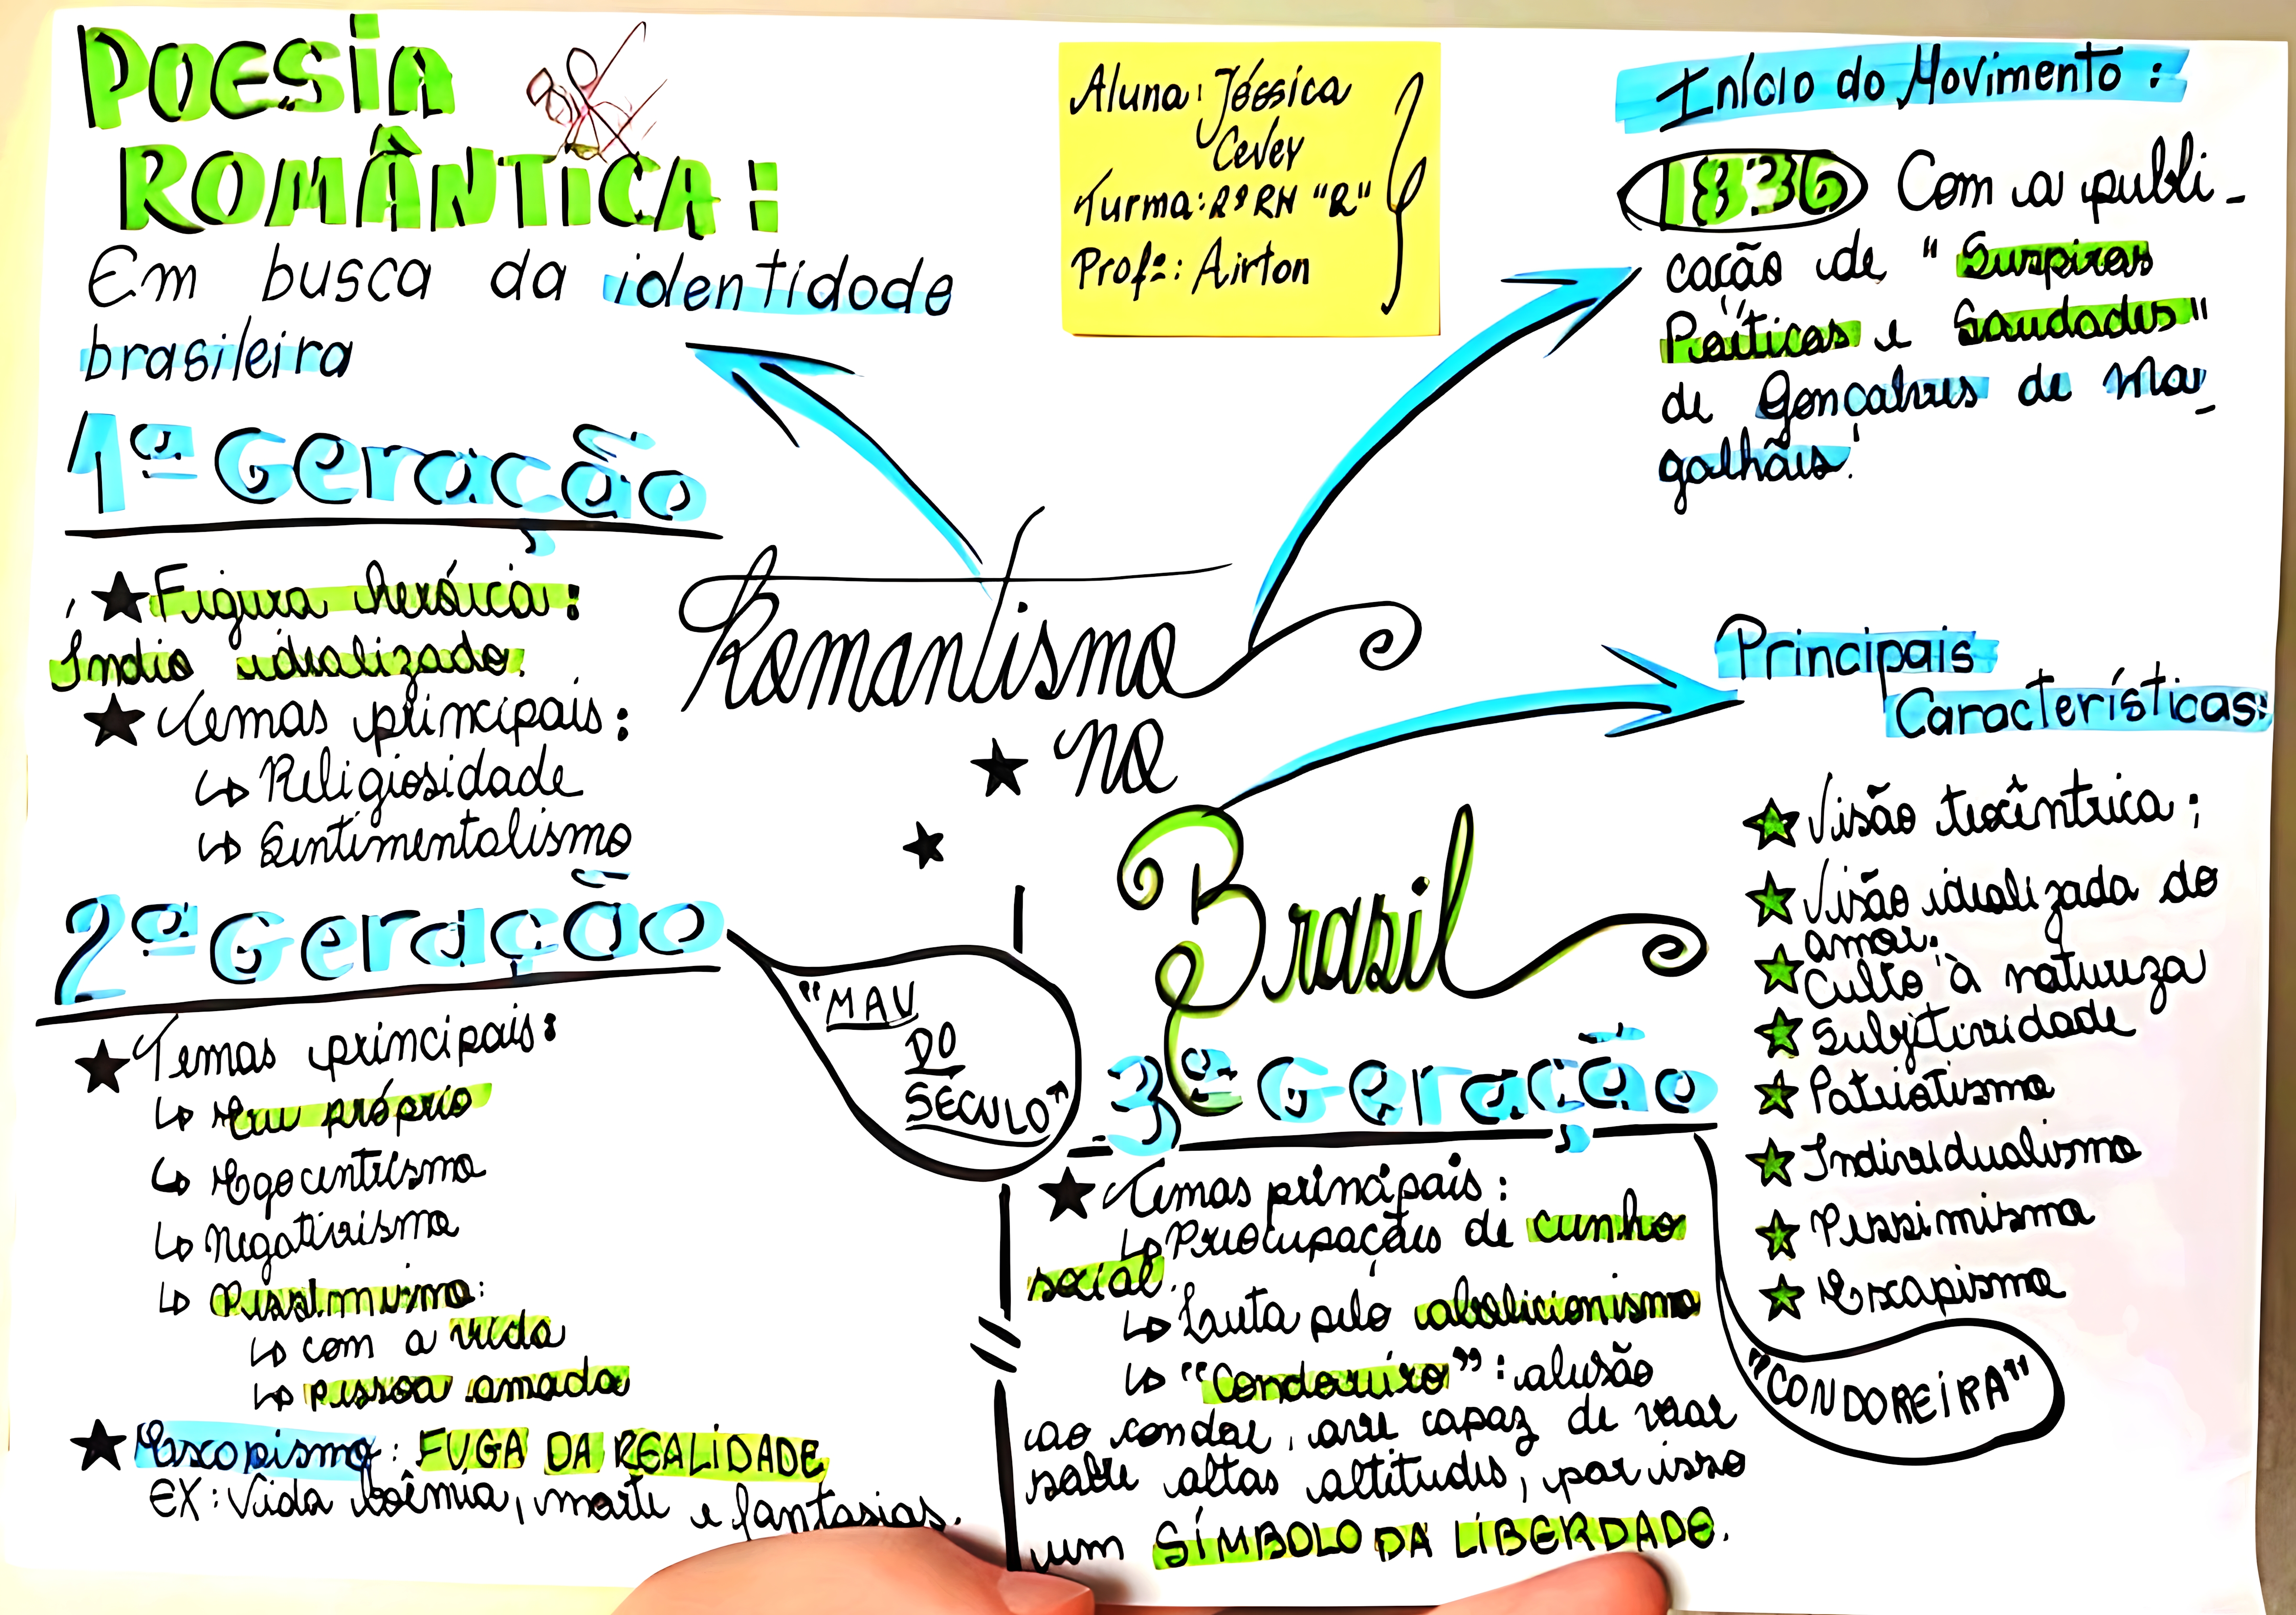 POESIA
ROMÂNTICA:
Em busca da identidade
brasileira
1ª Geração
Figura heróica:
Índio idealizado.
Temas principais:
Religiosidade
Sentimentalismo
2ª Geração
Temas principais:
Eu próprio
Egocentrismo
Negativismo
Pessimismo:
com a vida
pessoa amada
Escapismo: FUGA DA REALIDADE
EX: Vida boêmia, morte e fantasias.
"MAU
DO
SÉCULO"
Aluna: Jéssica
Cevey
Turma: "R"
Profº: Airton
Romantismo
no
Brasil
Início do Movimento:
1836 Com a publi-
cação de "Suspiros
Poéticos e Saudades"
de Gonçalves de Ma-
galhães.
Principais
Características:
Visão teocêntrica;
Visão idealizada do
amor;
Culto à natureza
Subjetividade
Patriotismo
Individualismo
Pessimismo
Escapismo
3ª Geração
Temas principais:
Preocupações de cunho
social.
Luta pelo abolicionismo
"Condoreiro": alusão
ao condor, ave capaz de voar
sobre altas altitudes, por isso
um SÍMBOLO DA LIBERDADE.
"CONDOREIRA"